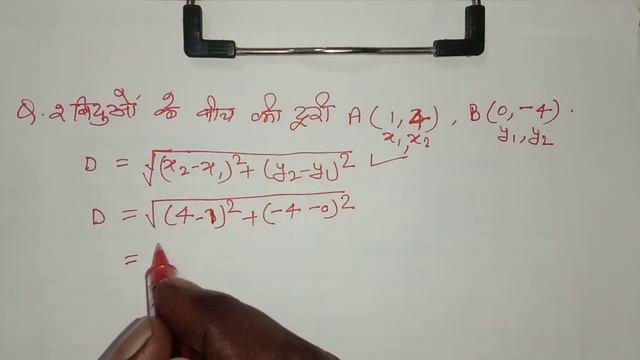 Q. २ बिंदुओं के बीच की दूरी A (1, 4), B (0, -4).
x₁, x₂ y₁, y₂
D = √(x₂-x₁)² + (y₂-y₁)²
D = √(4-1)² + (-4-0)²
=